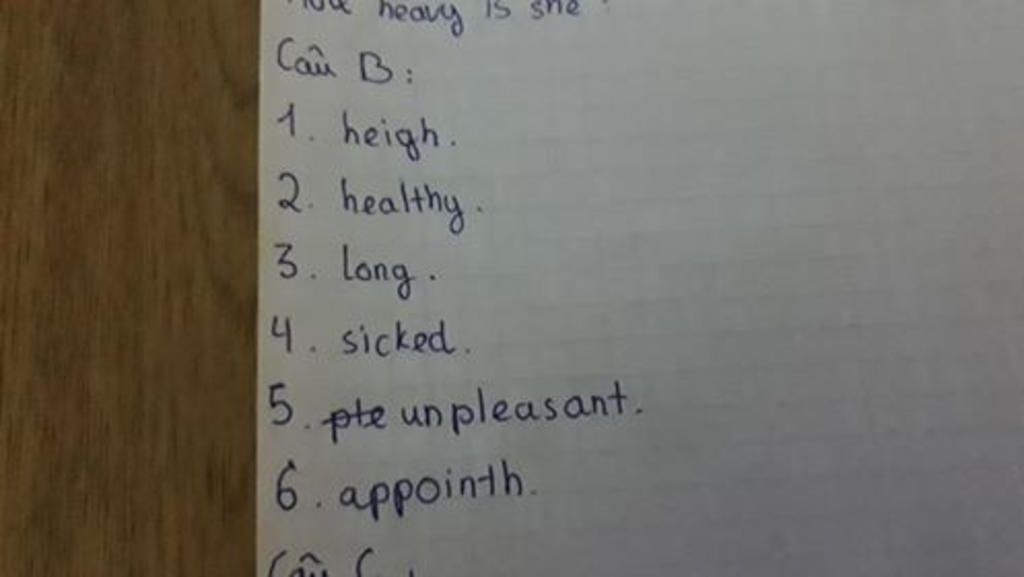 heavy is she
Câu B:
1. heigh.
2. healthy.
3. long.
4. sicked.
5. pte unpleasant.
6. appointh.
Câu C